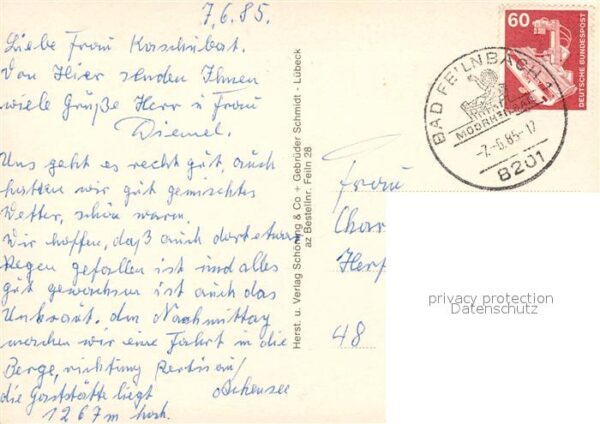 7.6.85.
Liebe Frau Kaschubat.
Von Hier senden Ihnen
viele Grüße Herr u Frau
Diemel.
Uns geht es recht gut, auch
hatten wir gut gemischtes
Wetter, schön warm.
Wir hoffen, daß auch dort etwas
Regen gefallen ist und alles
gut gewachsen ist auch das
Unkraut. den Nachmittag
machen wir eine Fahrt in die
Berge, richtung Pertisau/
Achensee
die Gaststätte liegt
1267m hoch.
Herst. u. Verlag Schöning & Co + Gebrüder Schmidt - Lübeck
az Bestellnr. Feiln 28
60
DEUTSCHE BUNDESPOST
BAD FEILNBACH 1
MOORHEILBAD
-7.-6.85-17
8201
Frau
Char
Herf
48
privacy protection
Datenschutz